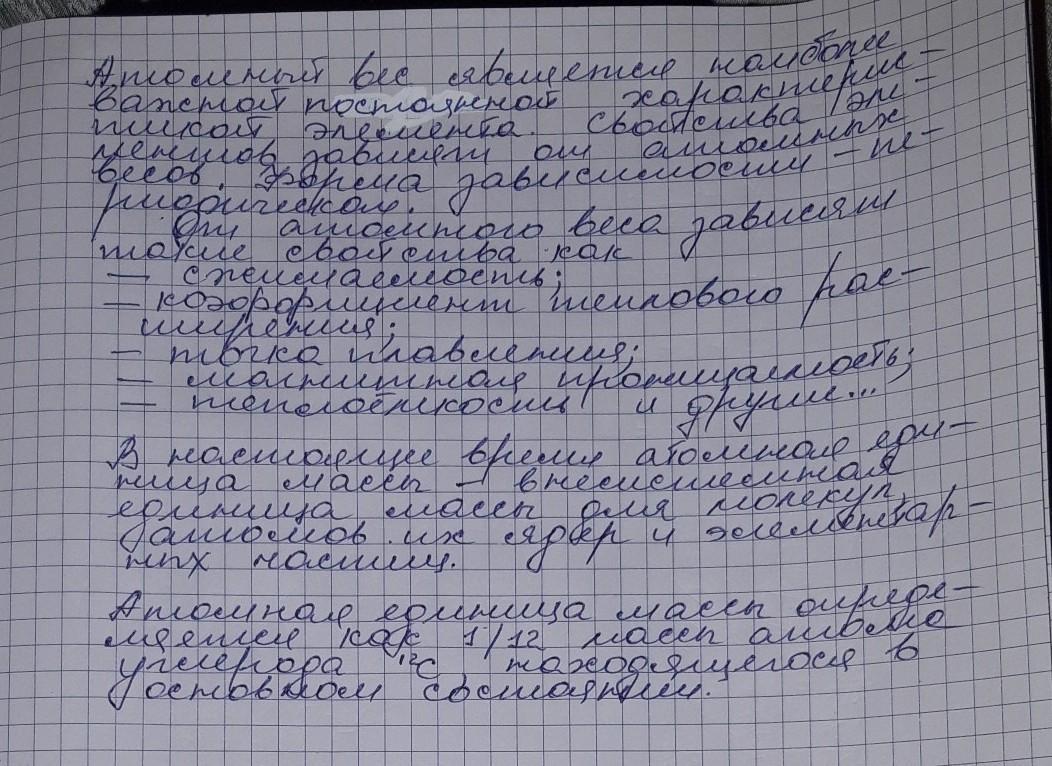 Атомный вес является наиболее
важной постоянной характерис-
тикой элемента. Свойства эле-
ментов зависят от атомных
весов. Форма зависимости – пе-
риодическая.
От атомного веса зависят
такие свойства как
— сжимаемость;
— коэффициент теплового рас-
ширения;
— точка плавления;
— магнитная проницаемость;
— теплоёмкость и другие...
В настоящее время атомная еди-
ница массы – внесистемная
единица массы для молекул,
атомов их ядер и элементар-
ных частиц.
Атомная единица массы опреде-
ляется как 1/12 массы атома
углерода ¹²C находящегося в
основном состоянии.